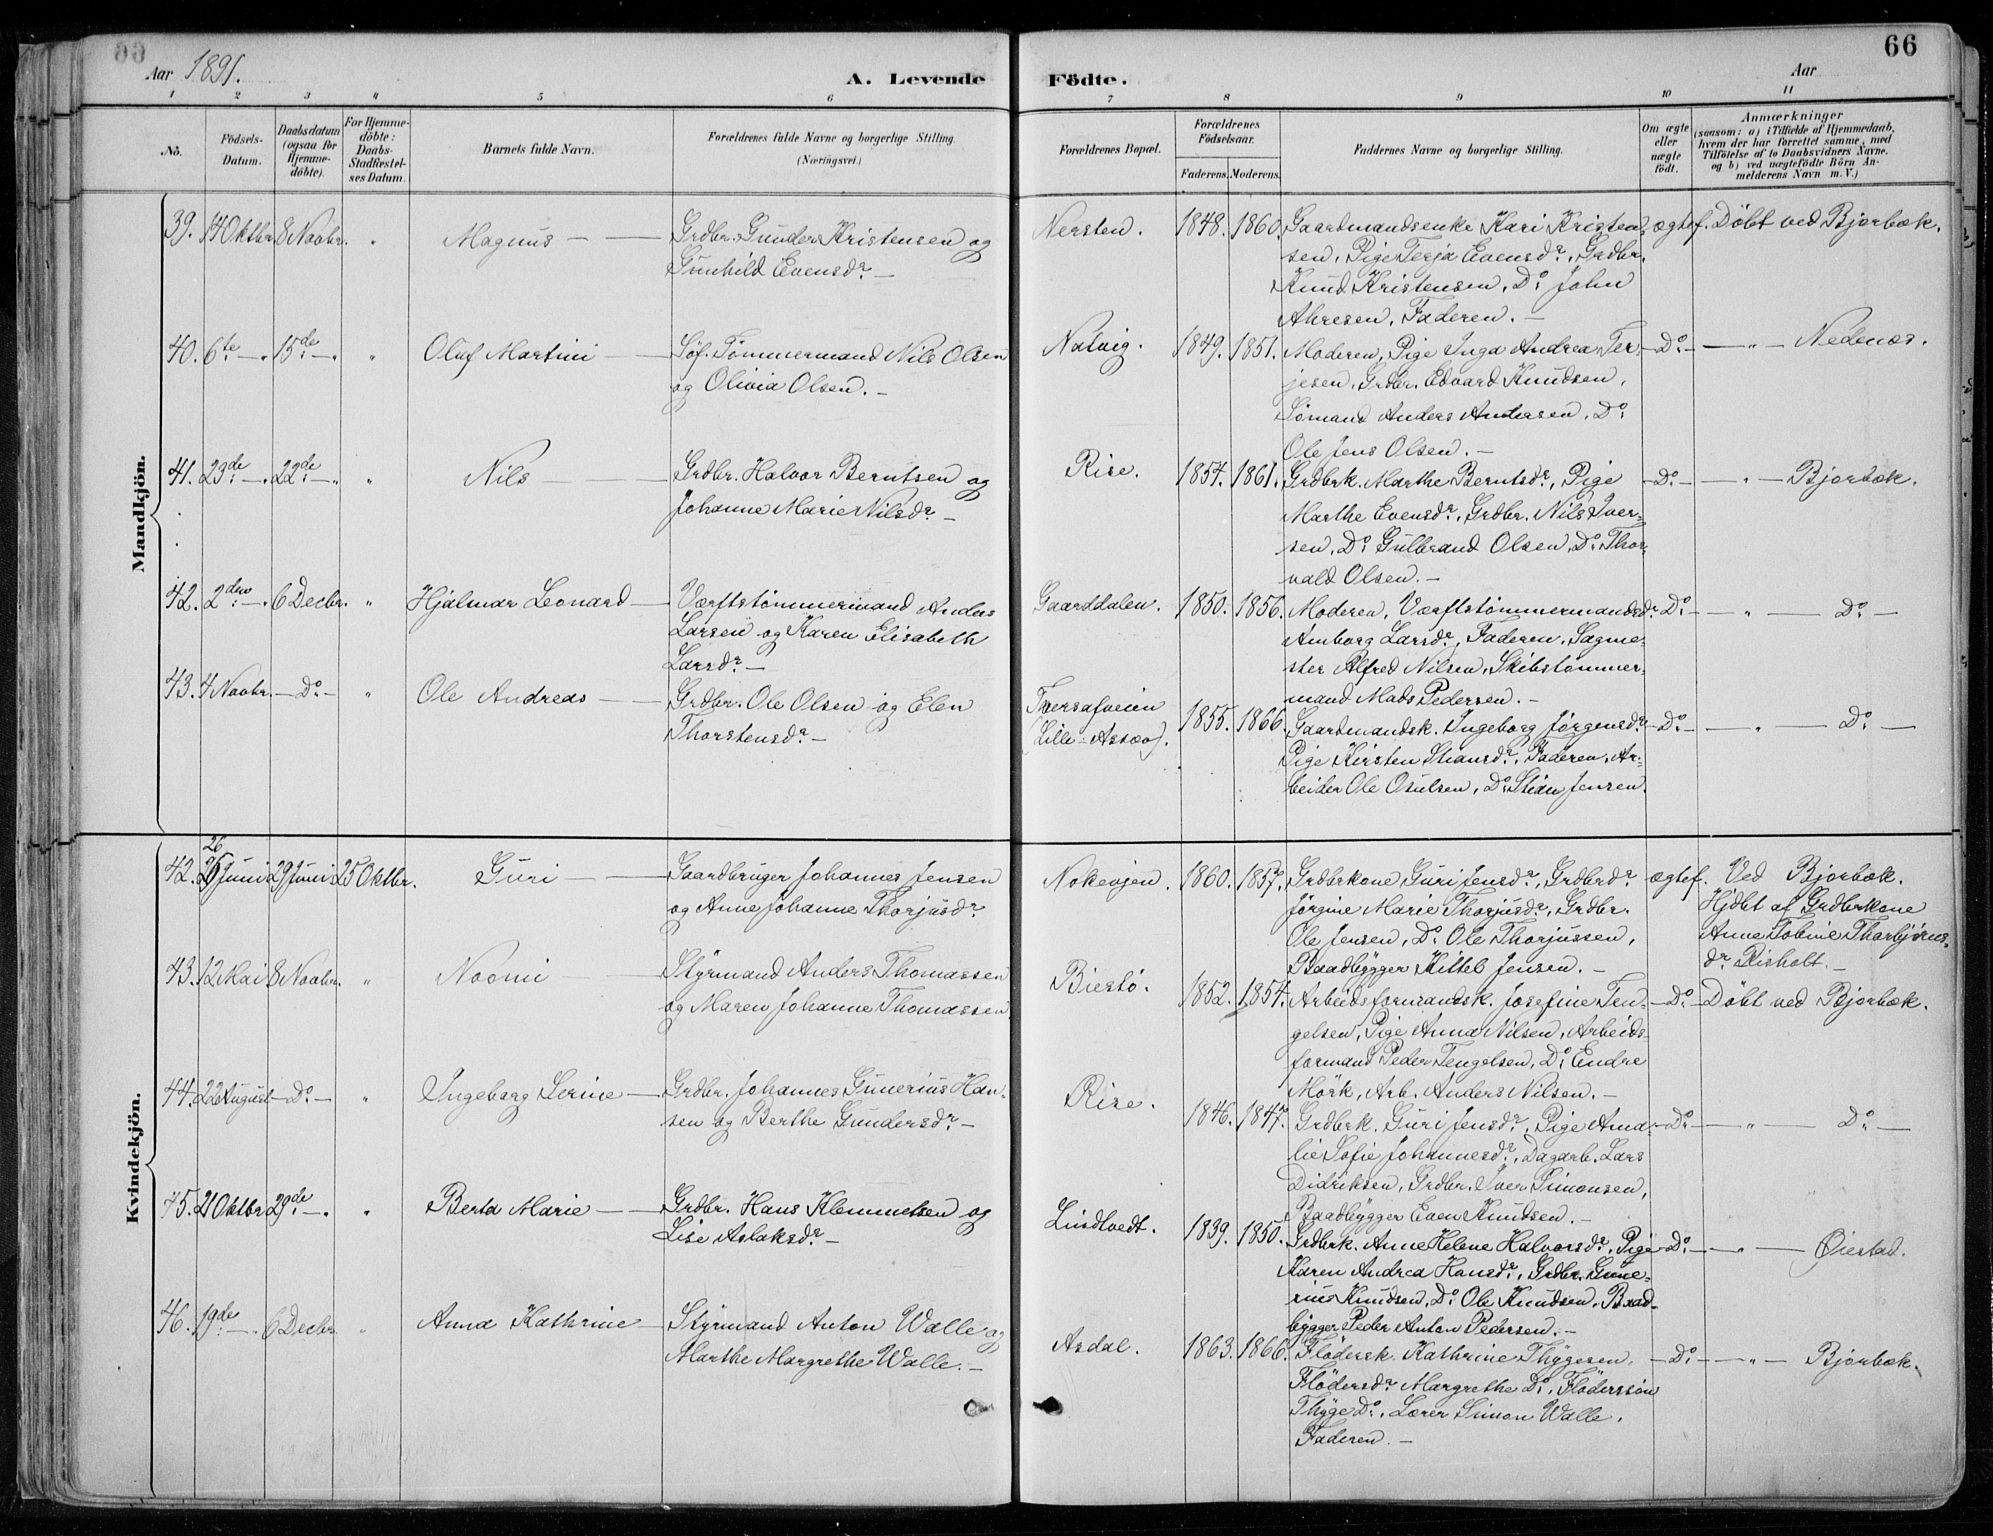 66
Aar 1891.
A. Levende
Födte.
Aar
1 2 3 4 5 6 7 8 9 10 11
No.
Födsels-Datum.
Daabsdatum (ogsaa for Hjemmedöbte).
For Hjemmedöbte: Daabs-Stadfæstelses Datum.
Barnets fulde Navn.
Forældrenes fulde Navne og borgerlige Stilling.
(Næringsvei.)
Forældrenes Bopæl.
Forældrenes Födselsaar.
Faderens. Moderens.
Faddernes Navne og borgerlige Stilling.
Om ægte eller uægte födt.
Anmærkninger
(saasom: a) i Tilfælde af Hjemmedaab,
hvem der har forrettet samme, med
Tilföielse af to Daabsvidners Navne.
og b) ved uægtefödte Börn An-
melderens Navn m. V.)
Mandkjön.
39. 14 Oktbr. 8 Novbr. " Magnus — Grdbr. Gunder Kristensen og
Gunhild Evensdr. —
Nersten. 1848. 1860. Gaardmandsenke Kari Kristen-
sen, Pige Terja Evensdr., Grdbr.
Knud Kristensen, Do. John
Ahresen, Faderen. —
ægtef. Döbt ved Bjorbæk.
40. 6te — " 15de — " " Oluf Martini — Söf. Tømmermand Nils Olsen
og Olivia Olsen. —
Natvig. 1849. 1851. Moderen, Pige Inga Andrea Ter-
jesen, Grdbr. Edvard Knudsen,
Sömand Anders Andersen, Do.
Ole Jens Olsen. —
Do. — " — Nedenæs.
41. 23de — " 22de — " " Nils — Grdbr. Halvor Berntsen og
Johanne Marie Nilsdr. —
Rise. 1854. 1861. Grdbrk. Marthe Berntsdr., Pige
Marthe Evensdr., Grdbr. Nils Iver-
sen, Do. Gulbrand Olsen, Do. Thor-
vald Olsen. —
Do. — " — Bjorbæk.
42. 2den — " 6 Decbr. " Hjalmar Leonard — Værftstømmermand Anders
Larsen og Karen Elisabeth
Larsdr. —
Gaarddalen. 1850. 1856. Moderen, Værftstømmermandsdr.
Amborg Larsdr., Faderen, Sagme-
ster Alfred Nilsen, Skibstømmer-
mand Mads Pedersen. —
Do. — " — Do. —
43. 4 Novbr. — Do. — " Ole Andreas — Grdbr. Ole Olsen og Elen
Thorstensdr. —
Tversafveien
(Lille-Assæv).
1855. 1866. Gaardmandsk. Ingeborg Jørgensdr.
Pige Kirsten Stiansdr., Faderen, Ar-
beider Ole Osulsen, Do. Stian Jensen.
Do. — " — Do. —
Kvindekjön.
26
42. 25 Juni 29 Juni 25 Oktbr. Guri — Gaardbruger Johannes Jensen
og Anne Johanne Thorjusdr.
Nokevjen. 1860. 1857. Grdbrkone Guri Jensdr., Grdbrdr.
Jörgine Marie Thorjusdr., Grdbr.
Ole Jensen, Do. Ole Thorjussen,
Baadbygger Kittel Jensen. —
ægtef. Ved Bjorbæk.
Hjdbt af Grdbrkone
Anne Tobine Thorbjörns-
dr. Risholt. —
43. 12 Mai 8 Novbr. " Noomi — Styrmand Anders Thomassen
og Maren Johanne Thomassen.
Biestö. 1852. 1854. Arbeidsformandsk. Josefine Ten-
gelsen, Pige Anna Nilsen, Arbeids-
formand Peder Tengelsen, Do. Endre
Mörk, Arb. Anders Nilsen. —
Do. — Döbt ved Bjorbæk.
44. 22 August — Do. — " Ingeborg Serine — Grdbr. Johannes Gunerius Han-
sen og Berthe Gundersdr. —
Rise. 1846. 1847. Grdbrk. Guri Jensdr., Pige Ama-
lie Sofie Johannesdr., Dagarb. Lars
Didriksen, Grdbr. Iver Simonsen,
Baadbygger Even Knutsen. —
Do. — " — Do. —
45. 21 Oktbr 29de — " " Berta Marie — Grdbr. Hans Klemmetsen og
Lise Aslaksdr. —
Lindtvedt. 1839. 1850. Grdbrk. Anne Helene Halvorsdr., Pige
Karen Andrea Hansdr., Grdbr. Gune-
rius Knudsen, Do. Ole Knudsen, Baad-
bygger Peder Anton Pedersen. —
Do. — " — Öiestad.
46. 19de — " 6 Decbr " Anna Kathrine — Styrmand Anton Walle og
Marthe Margrethe Walle. —
Asdal. 1863. 1866. Flödersk. Kathrine Thygesen,
Flödersdr. Margrethe Do., Flöderssön
Thyge Do., Lærer Simon Walle,
Faderen. —
Do. — " — Bjorbæk.